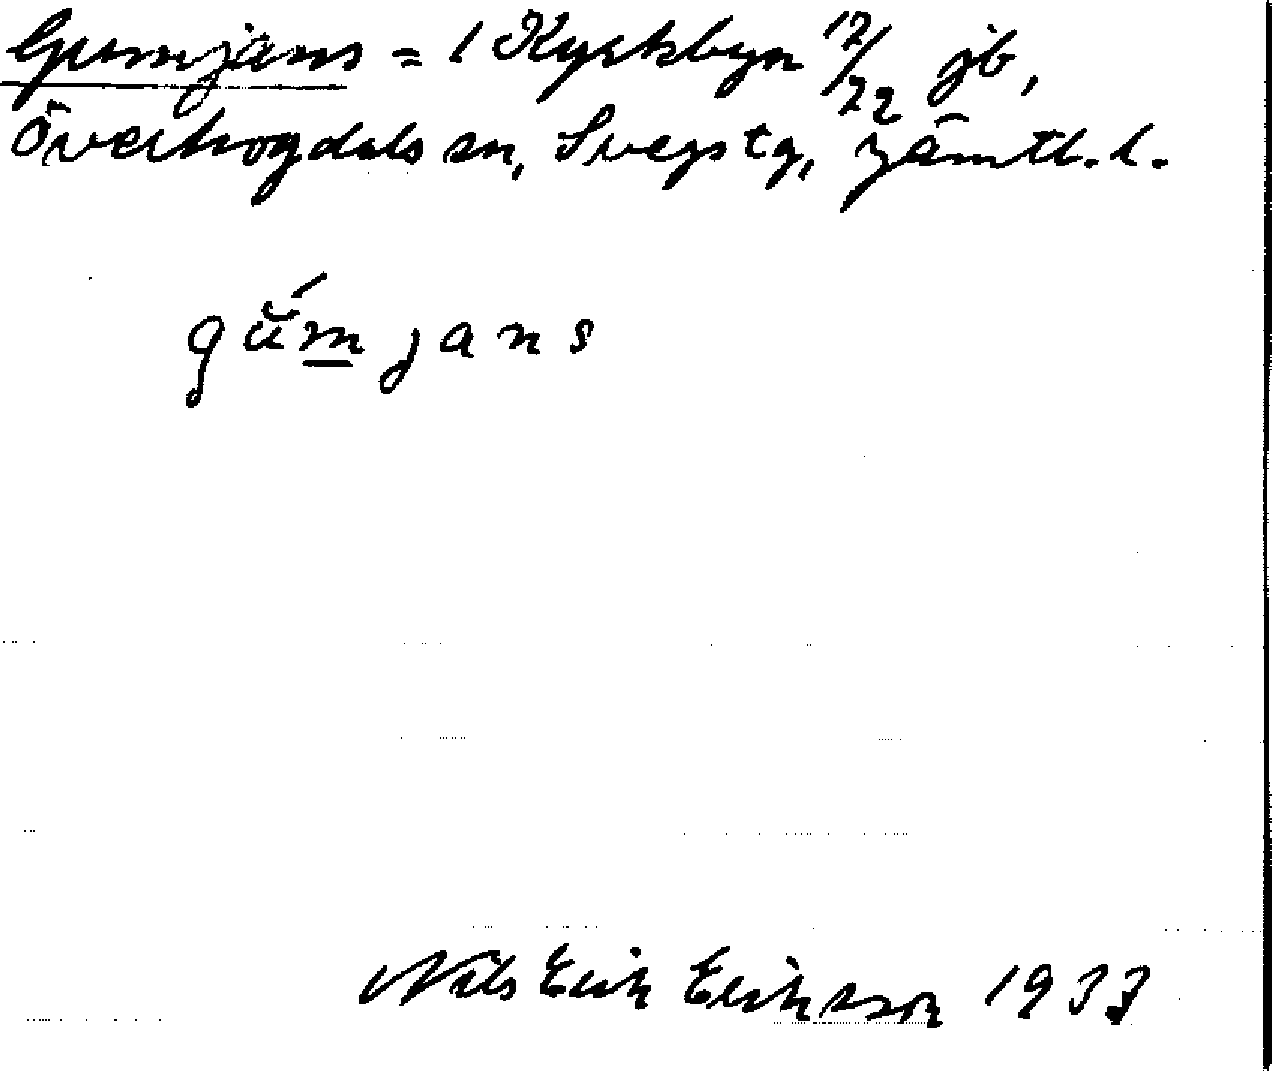 Gumjans = 1 Kyrkbyn 12/22 jb,
Överhogdals sn, Svegs tg, Jämtl. l.
gŭ́m̲jans
Nils Erik Eriksson 1933